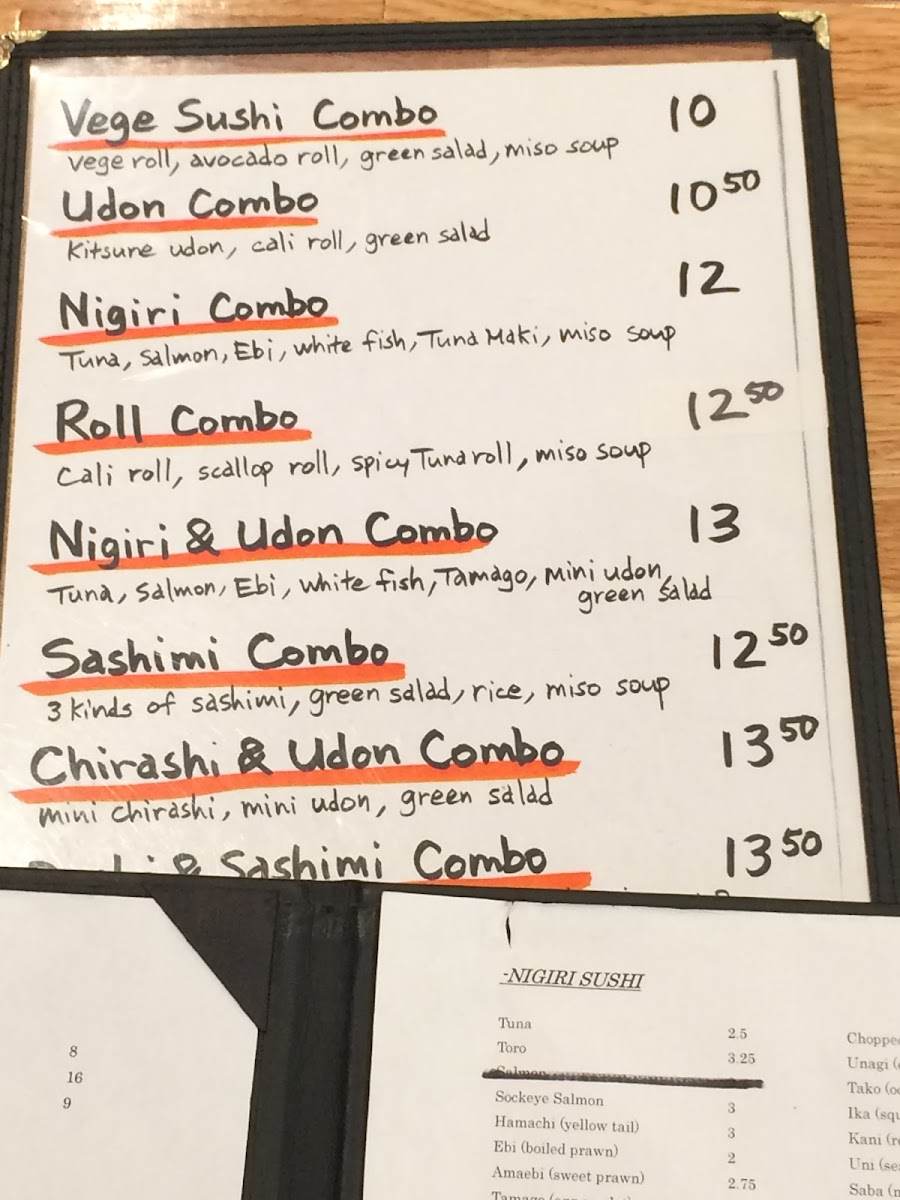 Vege Sushi Combo 10
vege roll, avocado roll, green salad, miso soup
Udon Combo 10 50
Kitsune udon, cali roll, green salad
Nigiri Combo 12
Tuna, Salmon, Ebi, white fish, Tuna Maki, miso soup
Roll Combo 12 50
Cali roll, scallop roll, spicy Tuna roll, miso soup
Nigiri & Udon Combo 13
Tuna, Salmon, Ebi, white fish, Tamago, mini udon,
green salad
Sashimi Combo 12 50
3 kinds of sashimi, green salad, rice, miso soup
Chirashi & Udon Combo 13 50
mini chirashi, mini udon, green salad
& Sashimi Combo 13 50
8
16
9
-NIGIRI SUSHI
Tuna 2.5
Toro 3.25
Salmon
Sockeye Salmon 3
Hamachi (yellow tail) 3
Ebi (boiled prawn) 2
Amaebi (sweet prawn) 2.75
Tamago
Unagi
Tako
Ika
Kani
Uni
Saba